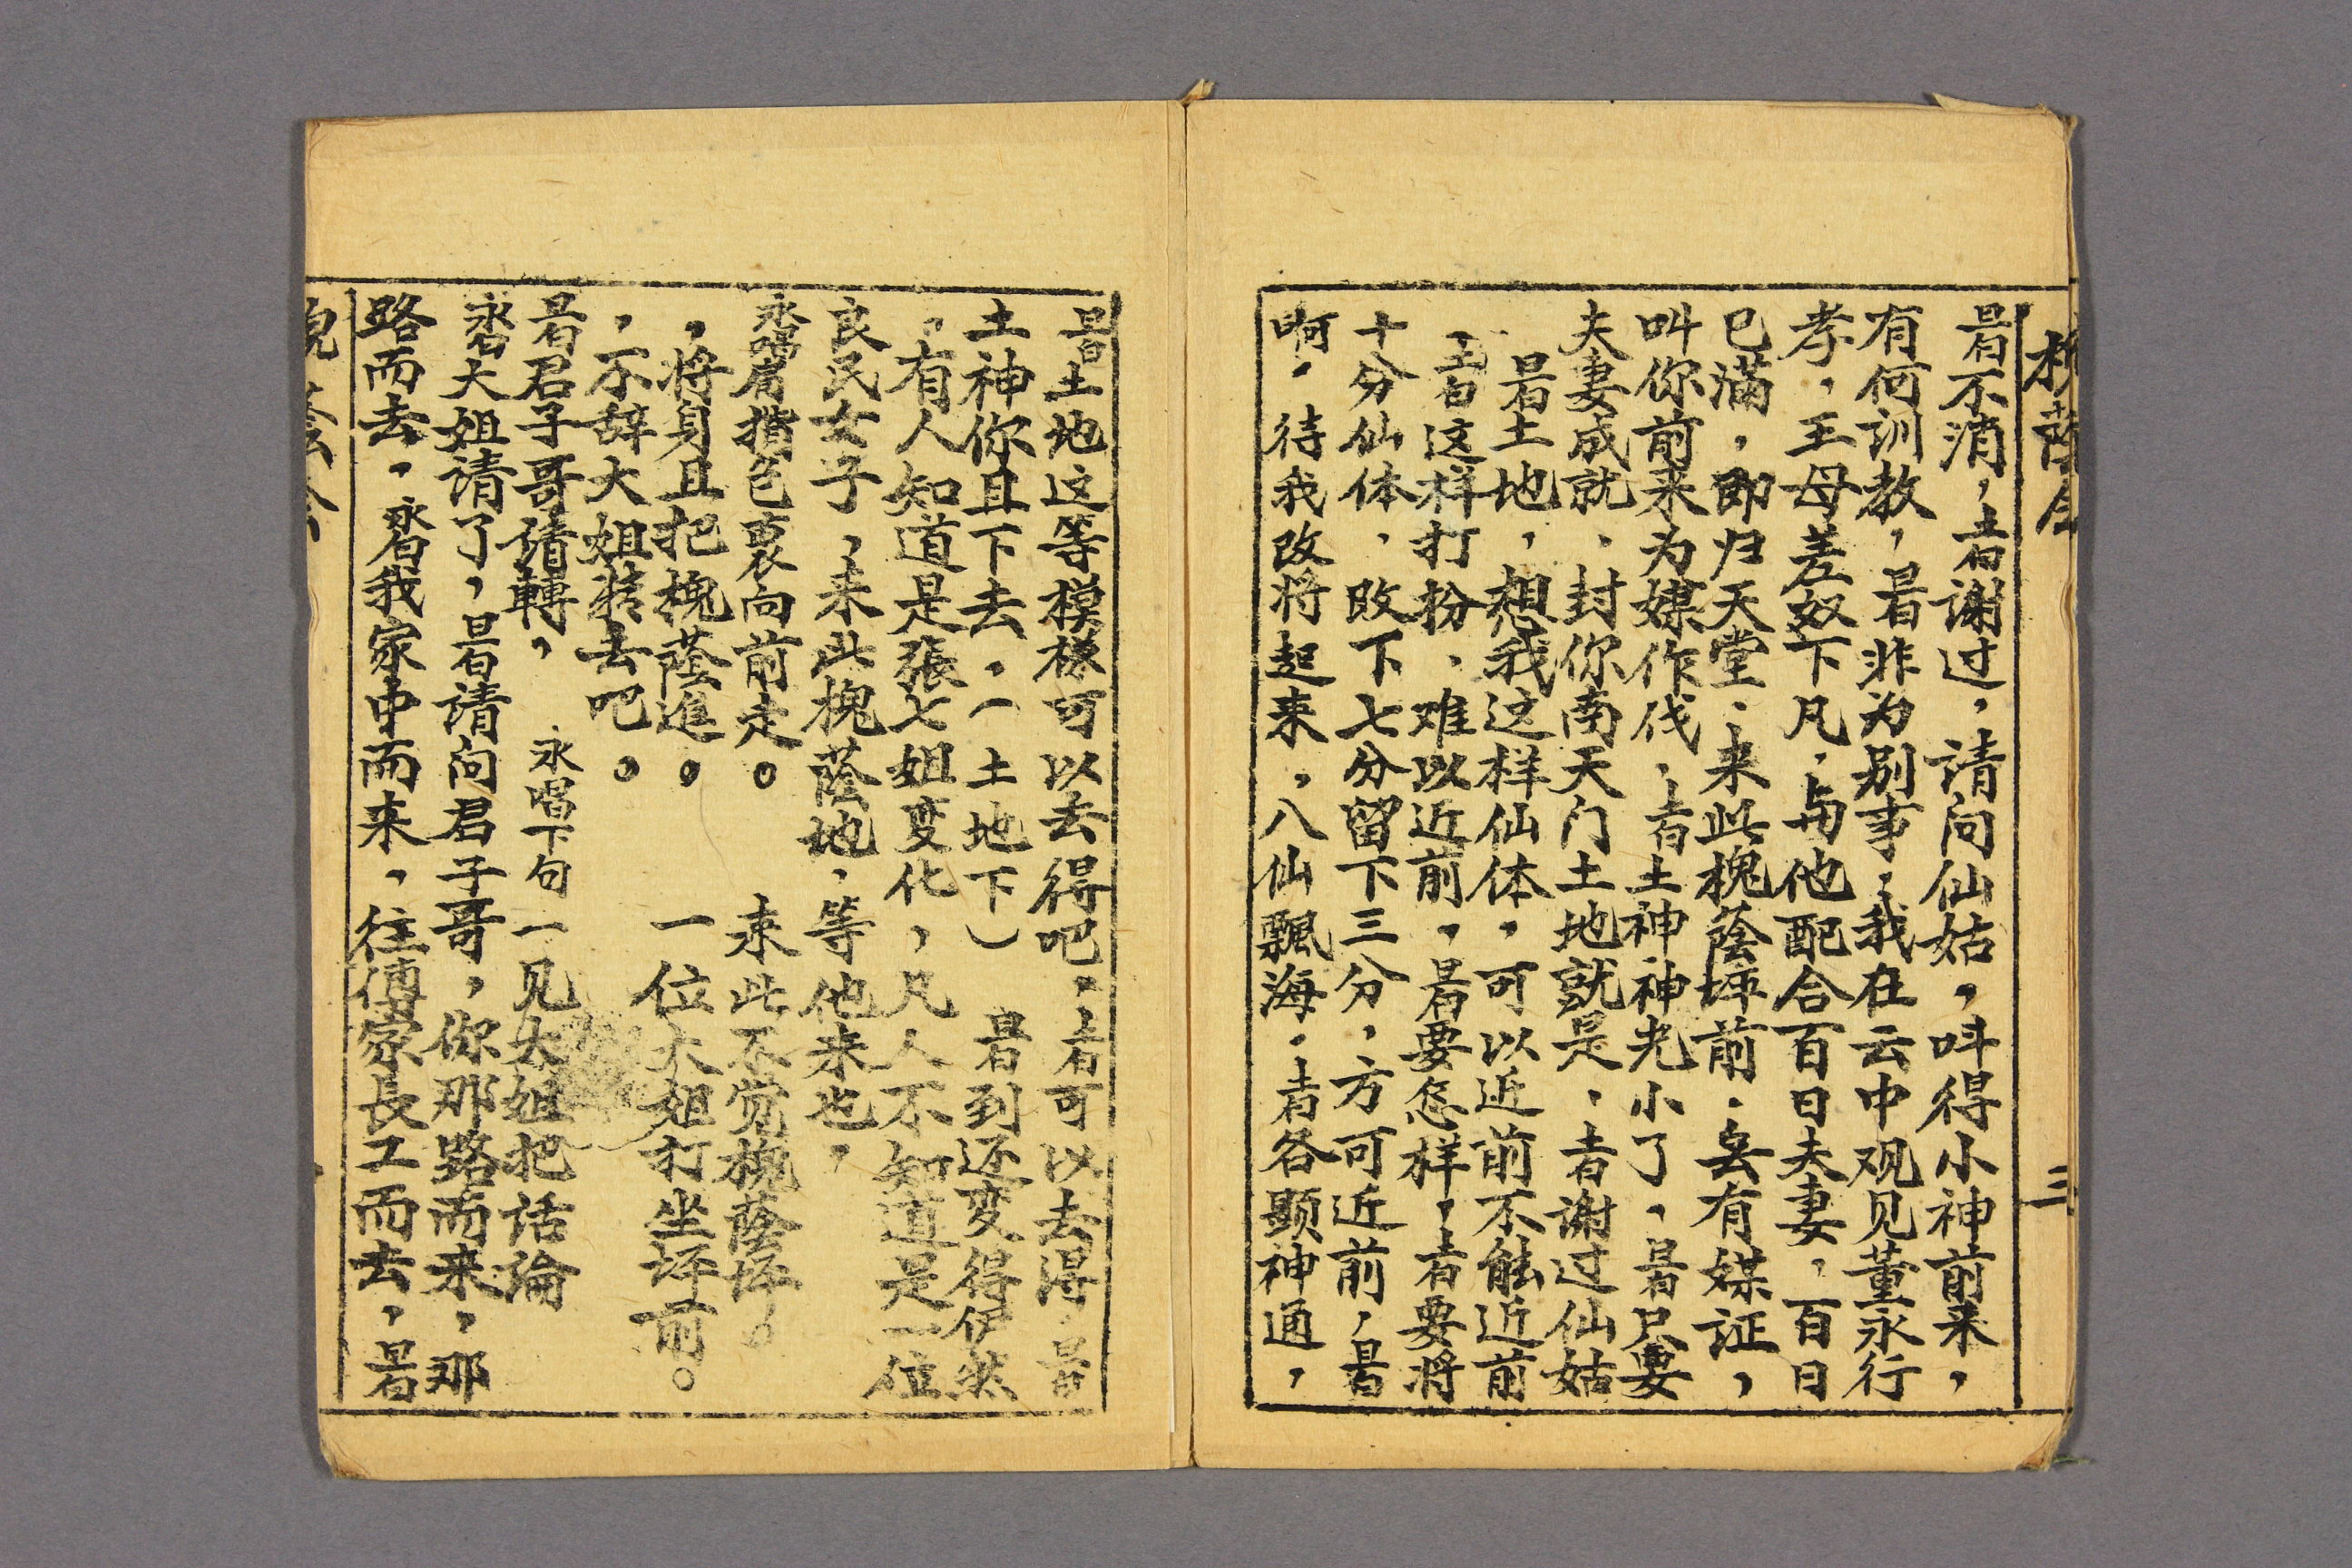 槐蔭会 三
旦白不消，土白謝过，请问仙姑，叫得小神前来，
有何训教，旦白非为别事，我在云中观见董永行
孝，王母差奴下凡，与他配合百日夫妻，百日
已满，即归天堂，来此槐蔭坪前，无有媒证，
叫你前来为媒作伐，土白土神神光小了，旦白只要
夫妻成就，封你南天门土地就是，土白谢过仙姑
旦白土地，想我这样仙体，可以近前不能近前
，土白这样打扮，难以近前，旦白要怎样，土白要将
十分仙体，改下七分留下三分，方可近前，旦白
啊，待我改将起来，八仙飄海，土白各顕神通，
旦白土地这等模樣可以去得吧，土白可以去得，旦白
土神你且下去，（土地下） 旦白到还变得伊然
，有人知道是張七姐变化，凡人不知道是一位
良民女子，来此槐蔭地，等他来也，
永唱肩揹包裹向前走。 来此不觉槐蔭坪。
，将身且把槐蔭進。 一位大姐打坐坪前。
，不辞大姐轉去吧。
旦白君子哥请轉， 永唱下句一见大姐把话論
永白大姐请了，旦白请问君子哥，你那路而来，那
路而去，永白我家中而来，往傅家長工而去，旦白
槐蔭会